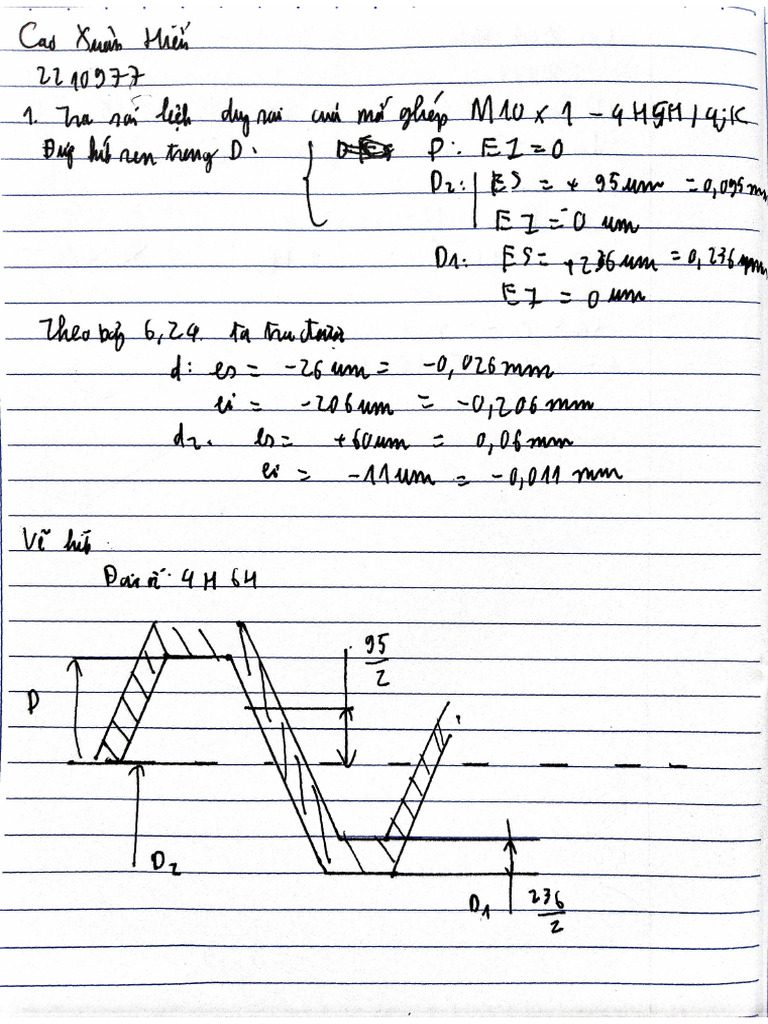 Cao Xuân Hiến
2210977
1. Tra sai lệch dung sai của mối ghép M10 x 1 - 4H5H / 4jK
ren trong D: D: EI = 0
D2: ES = + 95 um = 0,095 mm
EI = 0 um
D1: ES = +236 um = 0,236 mm
EI = 0 um
Theo bảng 6,24 ta tra được
d: es = -26 um = -0,026 mm
ei = -206 um = -0,206 mm
d2. es = +60 um = 0,06 mm
ei = -11 um = -0,011 mm
Vẽ
4H 6H
95/2
D
D2
D1 236/2